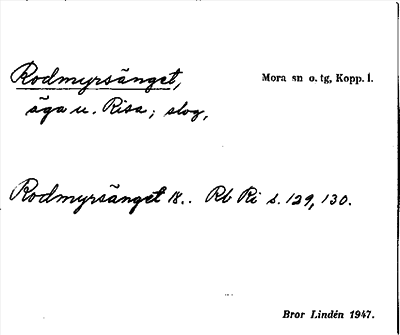 Rodmyrsänget, Mora sn o. tg, Kopp. l.
äga u. Risa; slog,
Rodmyrsänget 18.. Rb Ri s. 129, 130.
Bror Lindén 1947.